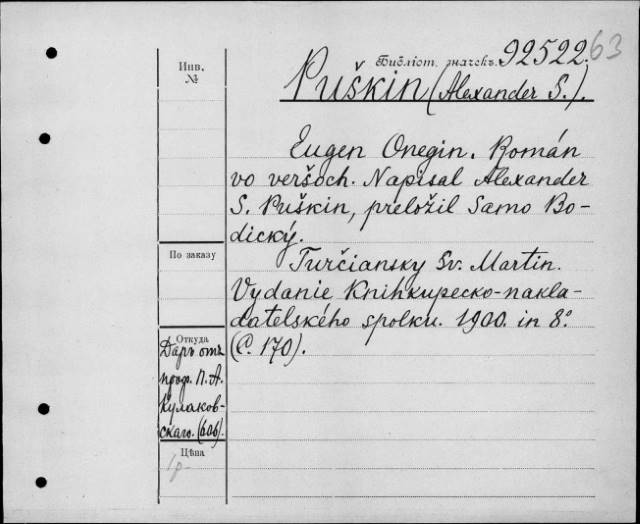 Инв.
№
Библіот. значекъ. 92522. 63
Puškin (Alexander S.).
Eugen Onegin. Román
vo veršoch. Napisal Alexander
S. Puškin, preložil Samo Bo-
dický.
По заказу
Turčiansky Sv. Martin.
Vydanie Knihkupecko-nakla-
datelského spolku. 1900. in 8º
(C. 170).
Откуда
Даръ отъ
проф. П. А.
Кулаков-
скаго. (606).
Цѣна
1 р-